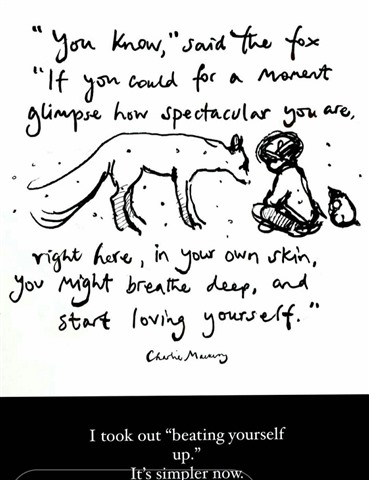 "You know," said the fox
"If you could for a moment
glimpse how spectacular you are,
right here, in your own skin,
you might breathe deep, and
start loving yourself."
Charlie Mackesy
I took out “beating yourself
up.”
It's simpler now.